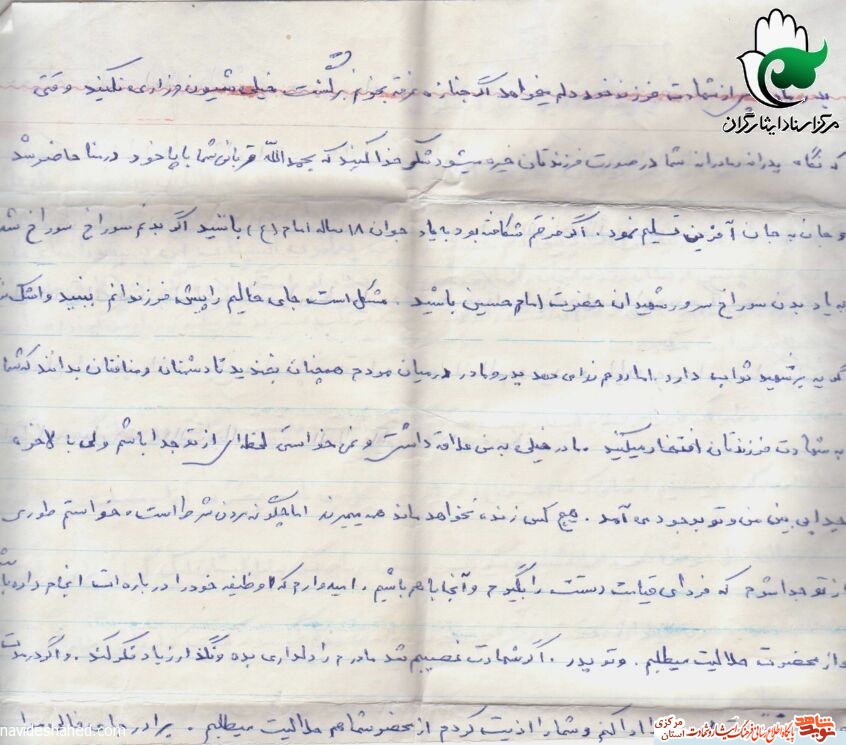 مرکز اسناد ایثارگران
از شهادت فرزند خود دلم میخواهد اگر جنازه غرقه بخونم برگشت خیلی شیون و زاری نکنید وقتی
که نگاه پدران مادران شما در صورت فرزندتان خیره میشود شکر خدا کنید که بحمدالله قربانی شما با پا خود در منا حاضر شد
و جان به جان آفرین تسلیم نمود. اگر فرقم شکافته بود به یاد جوان ۱۸ ساله امام (ع) باشید اگر بدنم سوراخ سوراخ شد
به یاد بدن سوراخ سرور شهیدان حضرت امام حسین باشید. مشکل است جای خالیم را پیش فرزندانم ببینید و اشک
گریه بر شهید ثواب دارد. اما روحم ندای دهد پدر و مادر در میان مردم همچنان بخندید تا دشمنان و منافقان بدانند که شما
به شهادت فرزندتان افتخار میکنید. مادر خیلی به من علاقه داشتی و نمی خواستی لحظه ای از تو جدا باشم ولی بالاخره
جدایی بین من و تو بوجود می آمد. هیچ کس زنده نخواهد ماند همه میمیرند اما چگونه مردن شرط است، خواستم طوری
از تو جدا شوم که فردای قیامت دستت را بگیرم و آنجا با هم باشیم. امیدوارم که وظیفه خود را درباره ات انجام داده
و از محضرت حلالیت میطلبم. و تو پدر. اگر شهادت نصیبم شد مادرم را دلداری بده و نگذار زیاد نکو کند. و اگر درست
ادا کنم و شما را اذیت کردم از محضر شما هم حلالیت میطلبم. برادر جای خالی مرا
navideshahed.com
نوید شاهد
پایگاه اطلاع رسانی فرهنگ ایثار و شهادت
استان مرکزی